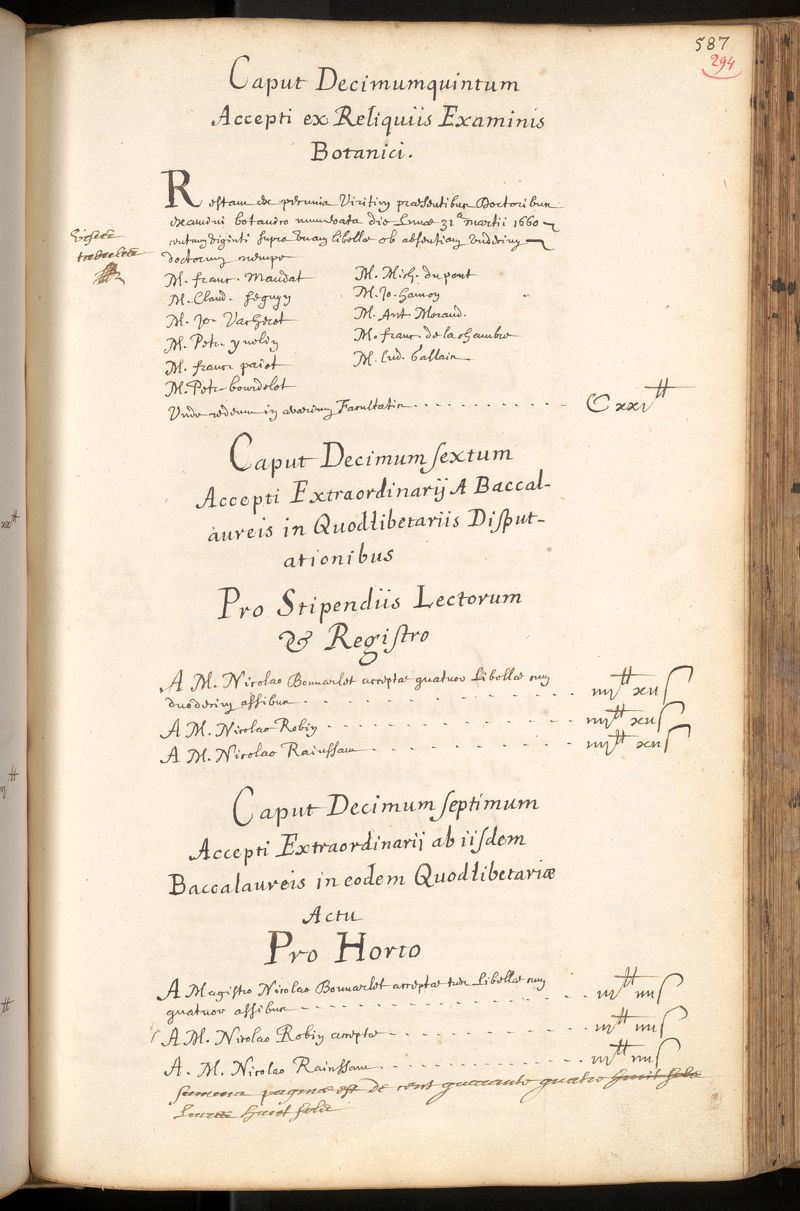 587
294
Caput Decimumquintum
Accepti ex Reliquiis Examinis
Botanici.
Restam ex pecunia Viritim præsentibus Doctoribus
examini botanico numerata die Lunæ 31ª martii 1660
centum viginti supra unam libellæ ob absentiam undecim
doctorum nempe
M. franc. Mandat
M. Claud. Seguyn
M. Jo. Vacherot
M. Petr. yvelin
M. franc. paiot
M. Petr. bourdelot
M. Mich. du pont
M. Jo. hamon
M. Ant. Morand.
M. franc. de la chambre
M. Lud. Gallais
Unde redeunt in ærarium Facultatis . . . . . . . . . . . C xxı ₶
Caput Decimum ſextum
Accepti Extraordinarij A Baccal-
aureis in Quodlibetariis Diſput-
ationibus
Pro Stipendiis Lectorum
& Regiſtro
A M. Nicolao Bonvarlet acceptæ quatuor Libellæ cum
duodecim aſſibus . . . . . . . . . . . . ıııȷ ₶ xıı ſ
A M. Nicolao Robin . . . . . . . . . . . ıııȷ ₶ xıı ſ
A M. Nicolao Rainſſant . . . . . . . . . ıııȷ ₶ xıı ſ
Caput Decimum ſeptimum
Accepti Extraordinarij ab iiſdem
Baccalaureis in eodem Quodlibetariæ
Actu
Pro Horto
A Magiſtro Nicolao Bonvarlet acceptæ tres Libellæ cum
quatuor aſſibus . . . . . . . . . . . . ııȷ ₶ ıııȷ ſ
A M. Nicolao Robin acceptæ . . . . . . . ııȷ ₶ ıııȷ ſ
A. M. Nicolao Rainſſant . . . . . . . . . ııȷ ₶ ıııȷ ſ
Summa paginæ est De cent quarante quatre huit solz
Livres huict solz